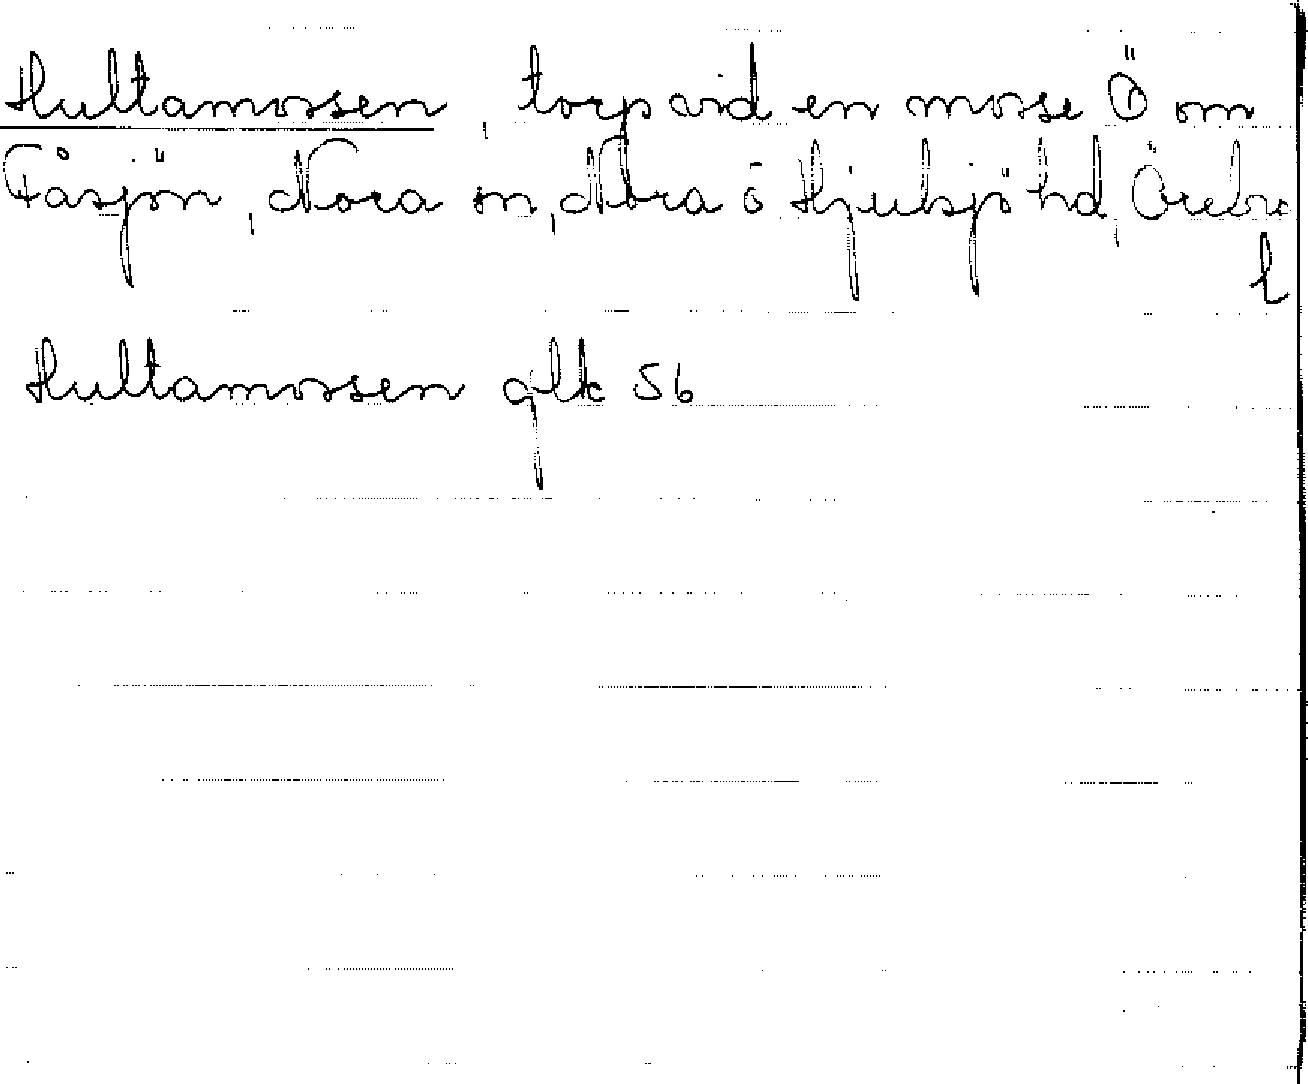 Hultamossen, torp vid en mosse Ö om
Fåsjön, Nora sn, Nora o Hjulsjö hd, Örebro
l
Hultamossen glk 56